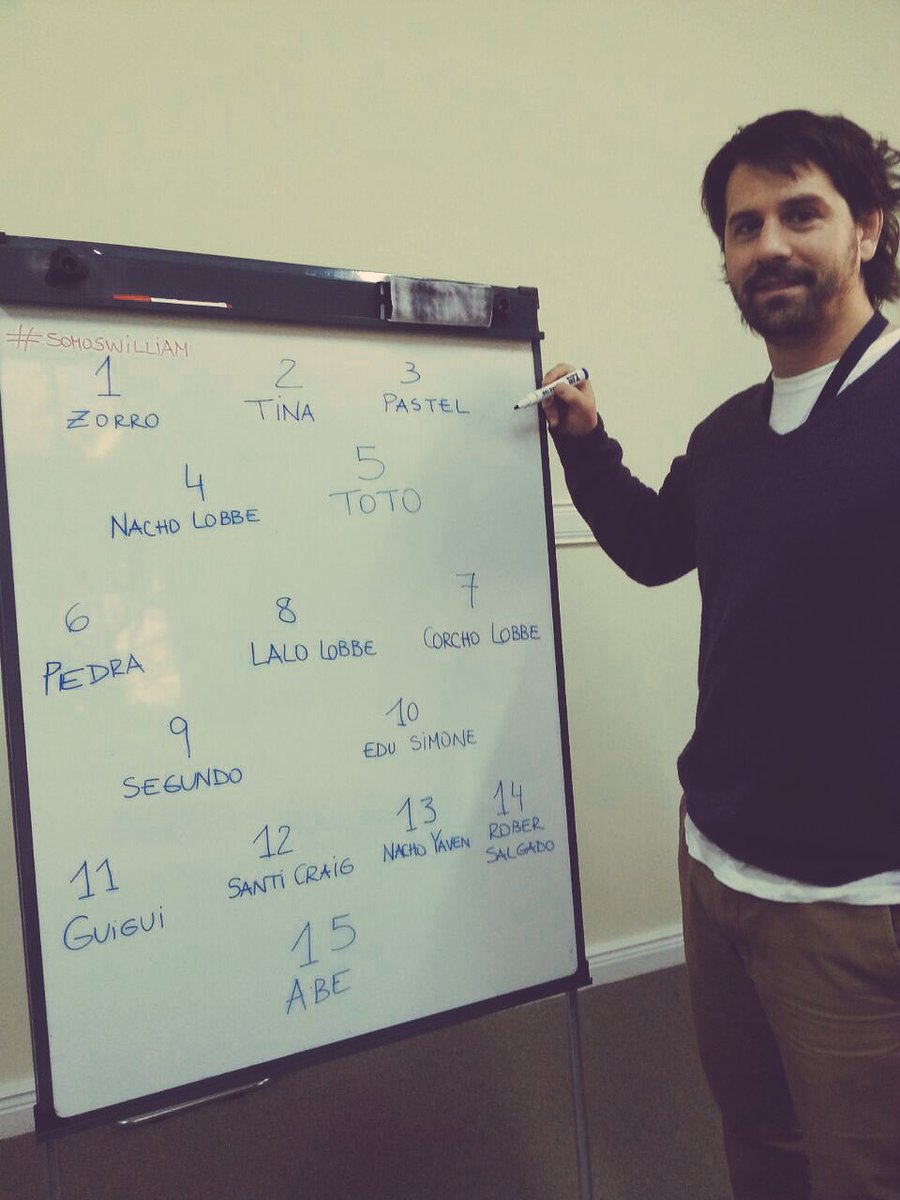 #SOMOSWILLIAM
1 2 3
ZORRO TINA PASTEL
4 5
NACHO LOBBE TOTO
6 8 7
PIEDRA LALO LOBBE CORCHO LOBBE
9 10
SEGUNDO EDU SIMONE
11 12 13 14
GUIGUI SANTI CRAIG NACHO YAVEN ROBER
SALGADO
15
ABE